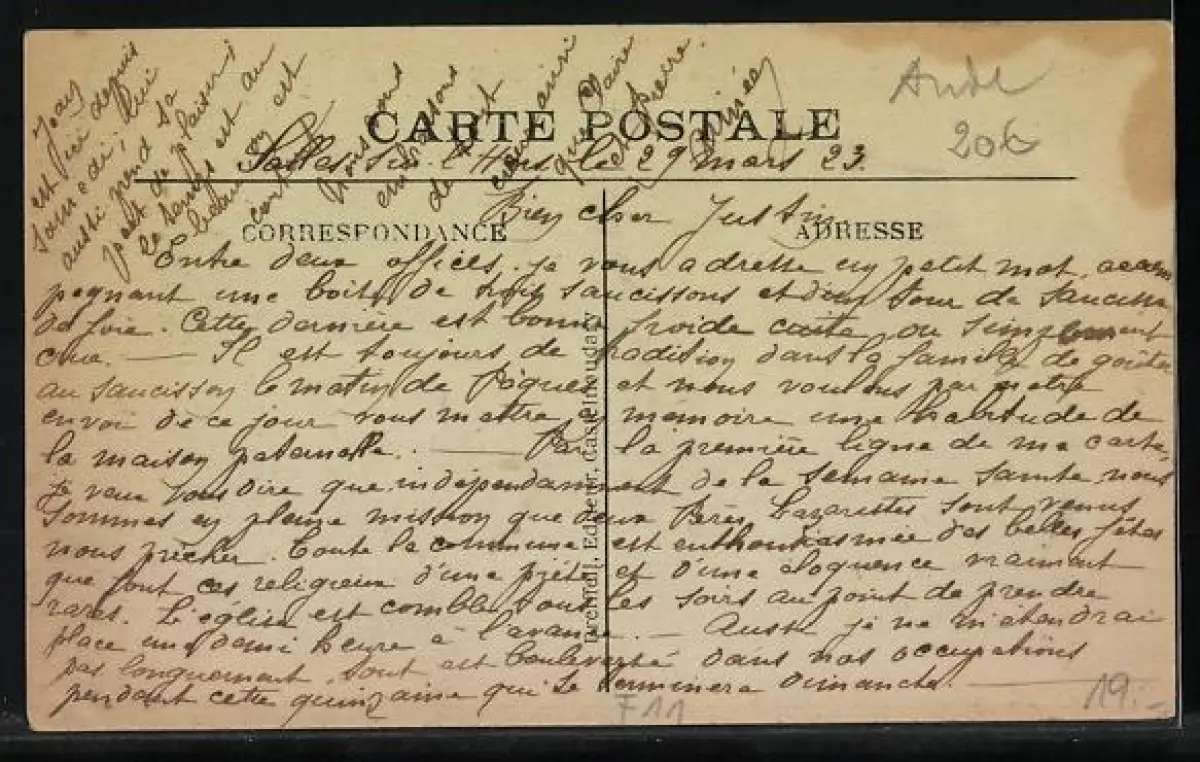 CARTE POSTALE
Aude
206
Salles sur l'Hers, le 29 mars 23.
CORRESPONDANCE
ADRESSE
Bien cher Justin
Entre deux offices je vous adresse un petit mot, accom
pagnant une boite de trois saucissons et deux tour de saucisse
de foie. Cette dernière est bonne froide cuite ou simplement
crue. — Il est toujours de tradition dans la famille de goûter
au saucisson le matin de Pâques et nous voulons par notre
envoi de ce jour vous mettre en mémoire une habitude de
la maison paternelle. — Par la première ligne de ma carte,
je veux vous dire que indépendamment de la semaine sainte nous
sommes en pleine mission que deux Pères Lazaristes sont venus
nous prêcher. Toute la commune est enthousiasmée des belles fêtes
que font ces religieux d'une piété et d'une éloquence vraiment
rares. L'église est comble tous les soirs au point de prendre
place une demi heure à l'avance. — Aussi je ne m'étendrai
pas longuement, tout est bouleversé dans nos occupations
pendant cette quinzaine qui se terminera dimanche. —
est ici depuis
samedi; lui
aussi prend sa
part de plaisirs
le temps est au
beau on est
Nous vous
embrassons
de tout
cœur ainsi
que Claire
et Pierre.
Aimée
Edit
Castelnaudary
F11
19.-